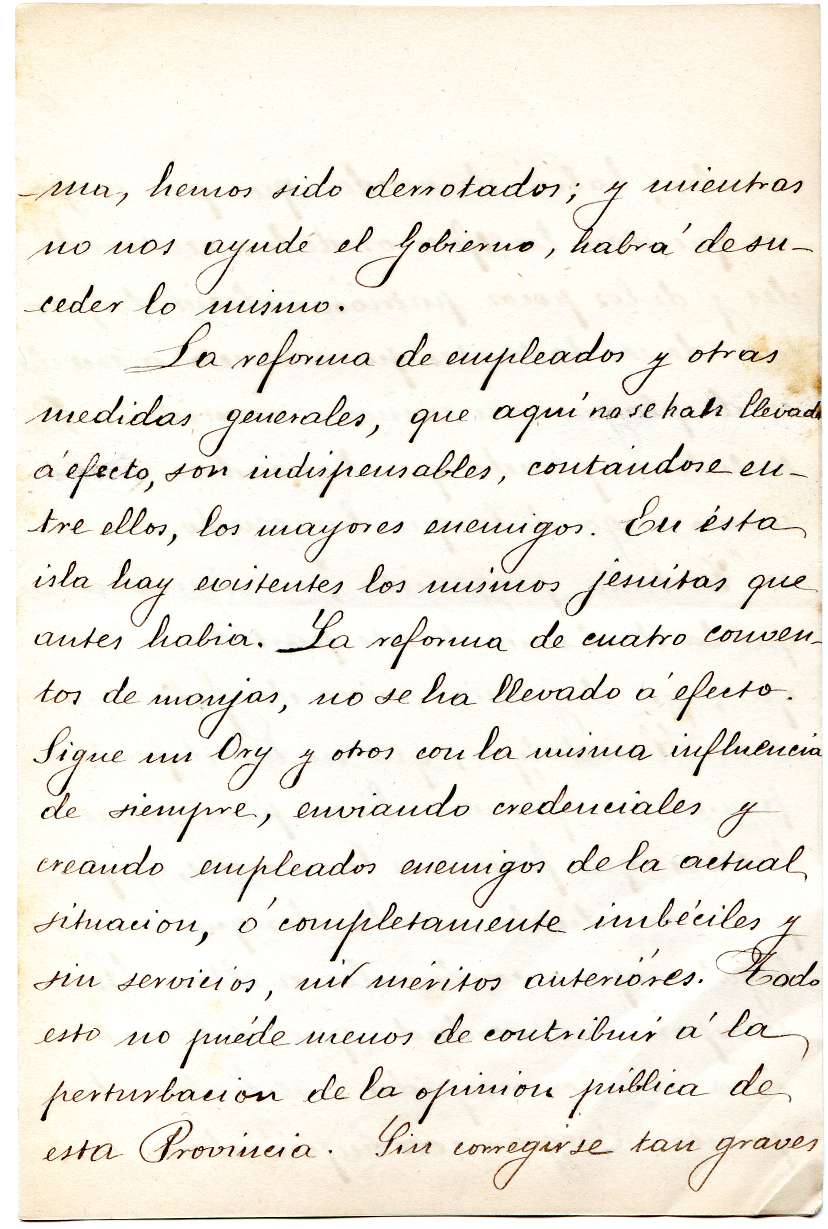 -ma, hemos sido derrotados; y mientras
no nos ayude el Gobierno, habrá de su-
-ceder lo mismo.
La reforma de empleados y otras
medidas generales, que aquí no se han llevado
á efecto, son indispensables, contándose en-
-tre ellos, los mayores enemigos. En ésta
isla hay existentes los mismos jesuitas que
antes habia. La reforma de cuatro conven-
tos de monjas, no se ha llevado á efecto.
Sigue un Ory y otros con la misma influencia
de siempre, enviando credenciales y
creando empleados enemigos de la actual
situacion, ó completamente imbéciles y
sin servicios, ni méritos anterióres. Todo
esto no puéde menos de contribuir á la
perturbacion de la opinion pública de
esta Provincia. Sin corregirse tan graves